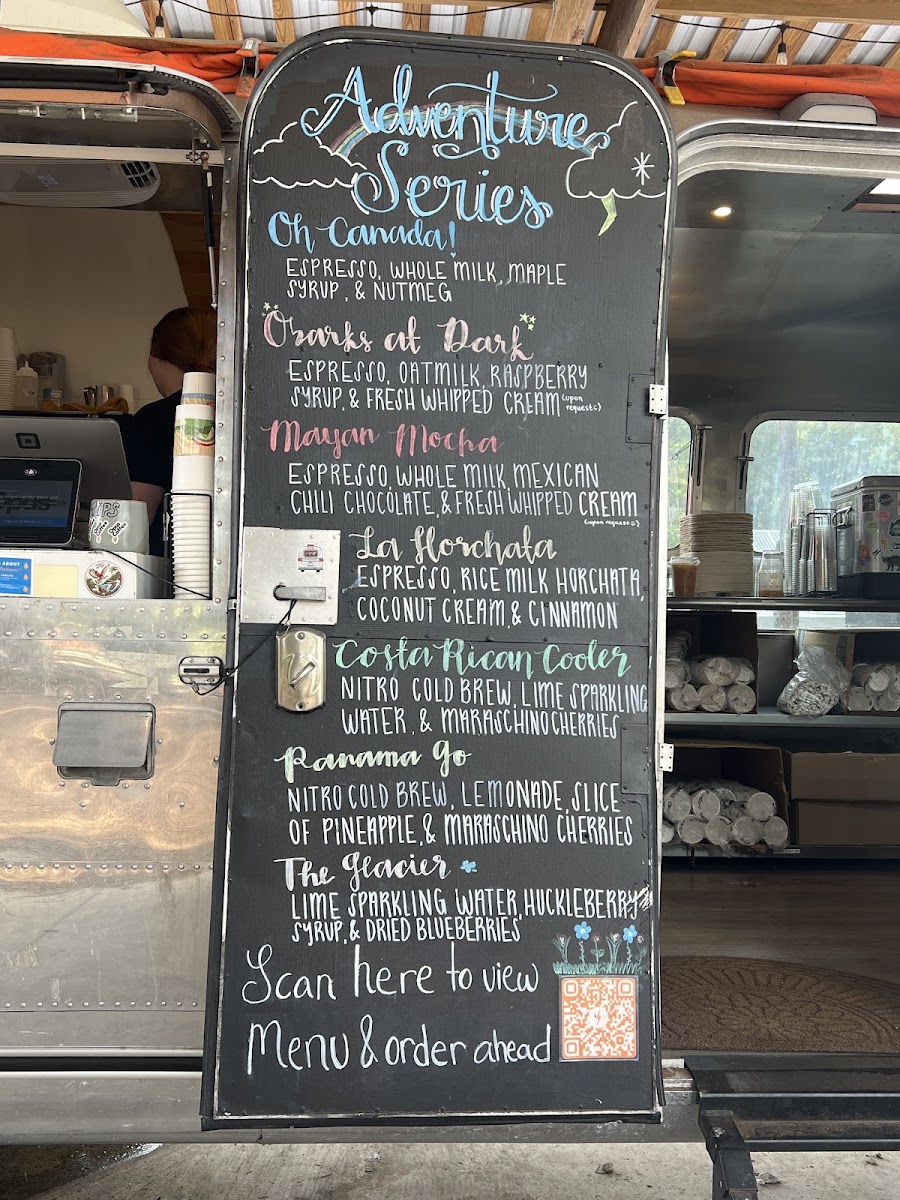 Adventure
Series
Oh Canada!
ESPRESSO, WHOLE MILK, MAPLE
SYRUP, & NUTMEG
Ozarks at Dark
ESPRESSO, OATMILK, RASPBERRY
SYRUP, & FRESH WHIPPED CREAM (upon
request☺)
Mayan Mocha
ESPRESSO, WHOLE MILK, MEXICAN
CHILI CHOCOLATE, & FRESH WHIPPED CREAM
(upon request☺)
La Horchata
ESPRESSO, RICE MILK HORCHATA,
COCONUT CREAM, & CINNAMON
Costa Rican Cooler
NITRO COLD BREW, LIME SPARKLING
WATER, & MARASCHINO CHERRIES
Panama Go
NITRO COLD BREW, LEMONADE, SLICE
OF PINEAPPLE, & MARASCHINO CHERRIES
The Glacier
LIME SPARKLING WATER, HUCKLEBERRY
SYRUP, & DRIED BLUEBERRIES
Scan here to view
Menu & order ahead
TIPS
ABOUT